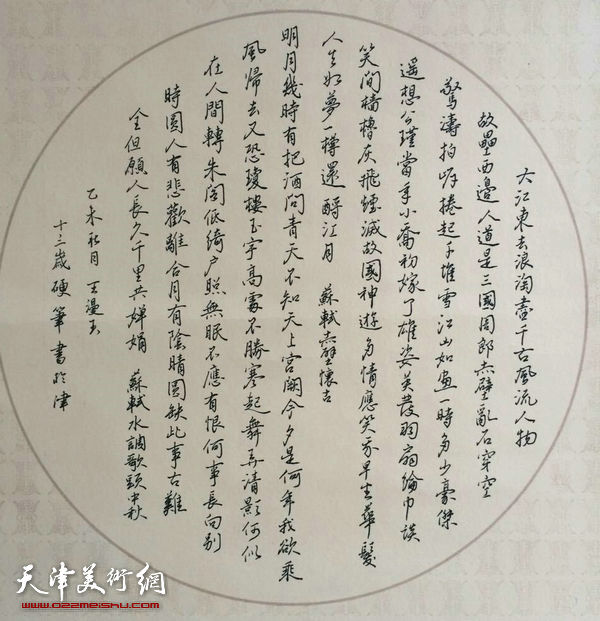 大江東去浪淘盡千古風流人物
故壘西邊人道是三國周郎赤壁亂石穿空
驚濤拍岸捲起千堆雪江山如畫一時多少豪傑
遥想公瑾當年小喬初嫁了雄姿英發羽扇綸巾談
笑間檣櫓灰飛煙滅故國神遊多情應笑我早生華髮
人生如夢一樽還酹江月 蘇軾赤壁懷古
明月幾時有把酒問青天不知天上宮闕今夕是何年我欲乘
風歸去又恐瓊樓玉宇高處不勝寒起舞弄清影何似
在人間轉朱閣低綺户照無眠不應有恨何事長向别
時圓人有悲歡離合月有陰晴圓缺此事古難
全但願人長久千里共嬋娟 蘇軾水調歌頭中秋
乙未秋月 王漫玉
十三歲硬筆書於津
天津美術網
www.022meishu.com